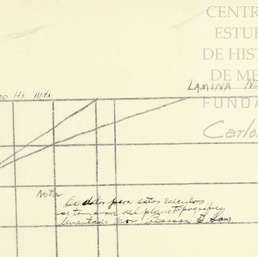 CENTR
ESTUDI
DE HIST
DE ME
FUNDA
Carlos
LAMINA No
Hs. Mts.
Nota
Los datos para estos calculos
se tomaron del plano topografico
levantado por